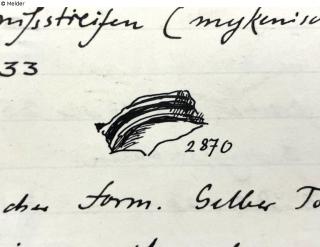 © Melder
nißstreifen (mykenisc
33
2870
cher Form. Selber To